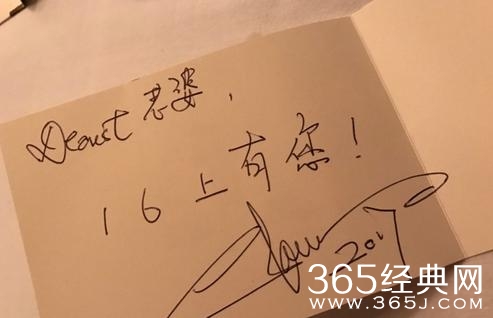 Dearest 老婆,
16上有您!
2017
365经典网
www.365J.com